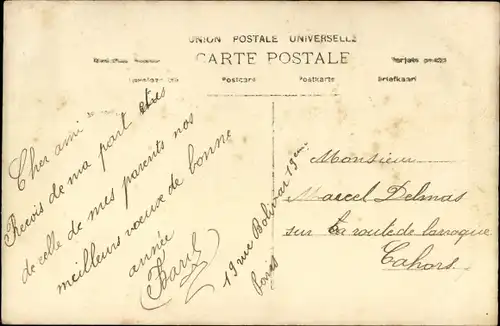 UNION POSTALE UNIVERSELLE
CARTE POSTALE
Postcard
Postkarte
Briefkaart
Cher ami
Reçois de ma part et
de celle de mes parents nos
meilleurs vœux de bonne
année
19 rue Bolivar 19eme
Paris
Monsieur
Marcel Delmas
sur la route de larroque
Cahors